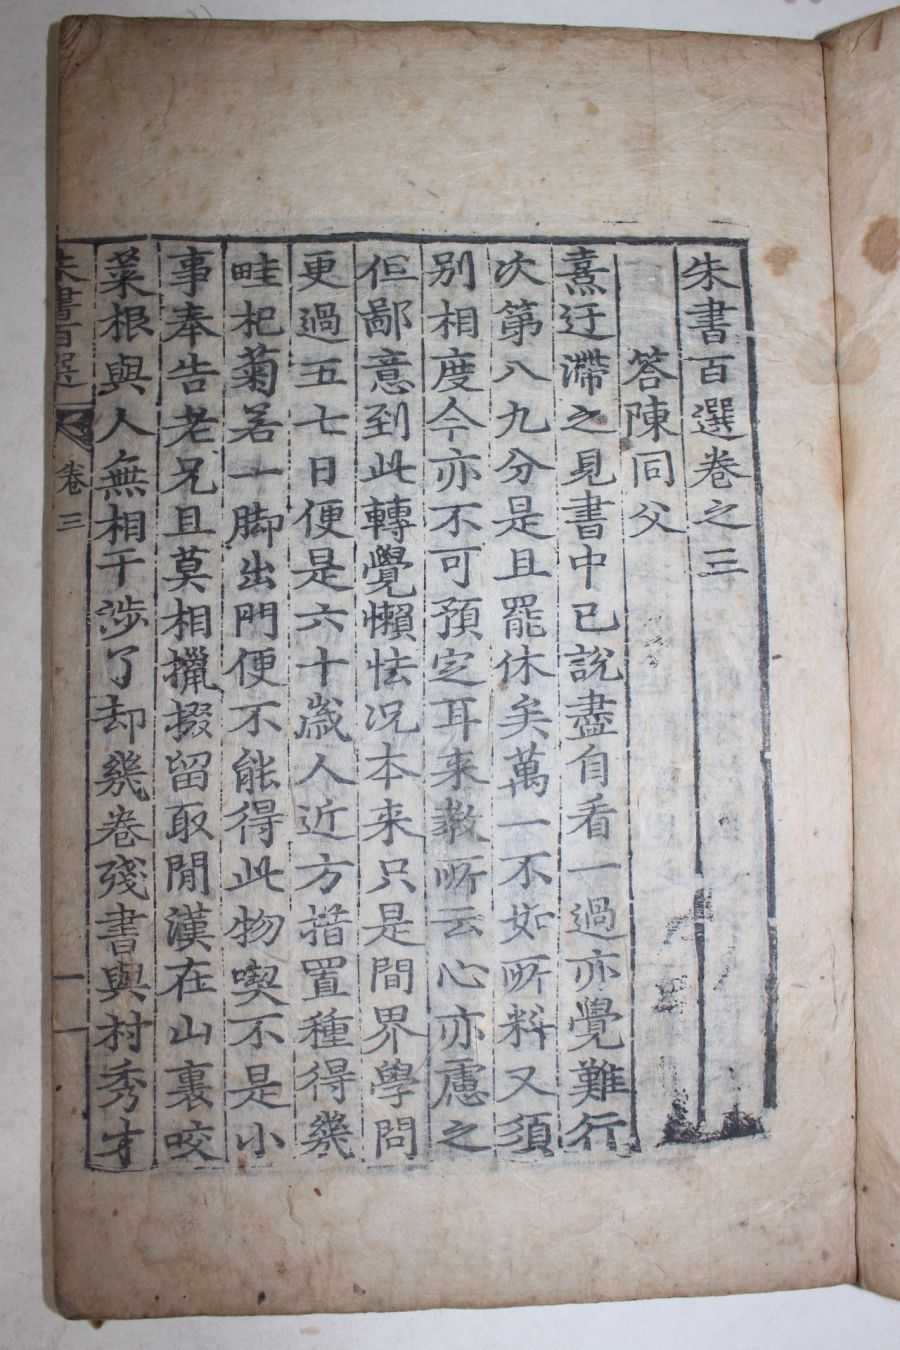 朱書百選卷之三
答陳同父
熹迂滯之見書中已說盡自看一過亦覺難行
次第八九分是且罷休矣萬一不如所料又須
別相度今亦不可預定耳来敎所云心亦慮之
但鄙意到此轉覺懶怯况本来只是間界學問
更過五七日便是六十歲人近方措置種得幾
畦杞菊若一脚出門便不能得此物喫不是小
事奉告老兄且莫相攛掇留取閒漢在山裏咬
菜根與人無相干涉了却幾卷殘書與村秀才
朱書百選 卷三 一